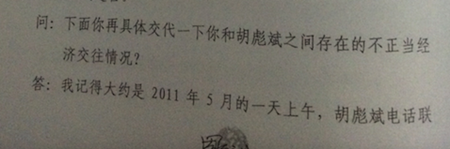 问：下面你再具体交代一下你和胡彪斌之间存在的不正当经
济交往情况？
答：我记得大约是 2011 年 5 月的一天上午，胡彪斌电话联